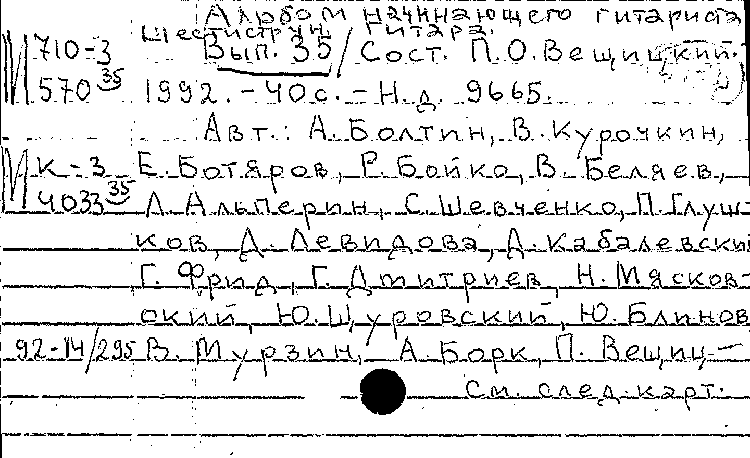 Альбом начинающего гитариста
Шестиструн. гитара.
И 710-3 Вып. 35 / Сост. П.О. Вещицкий.
570 35 1992. - 40 с. - Н.д. 9665.
Авт.: А. Болтин, В. Курочкин,
И К-3 Е. Ботяров, Р. Бойко, В. Беляев,
4033 35 Л. Альперин, С. Шевченко, П. Глуш-
ков, Д. Левидова, Д. Кабалевский
Г. Фрид, Г. Дмитриев, Н. Мясков-
ский, Ю. Щуровский, Ю. Блинов
92-14/295 В. Мурзин, А. Борк, П. Вещиц-
См. след. карт.